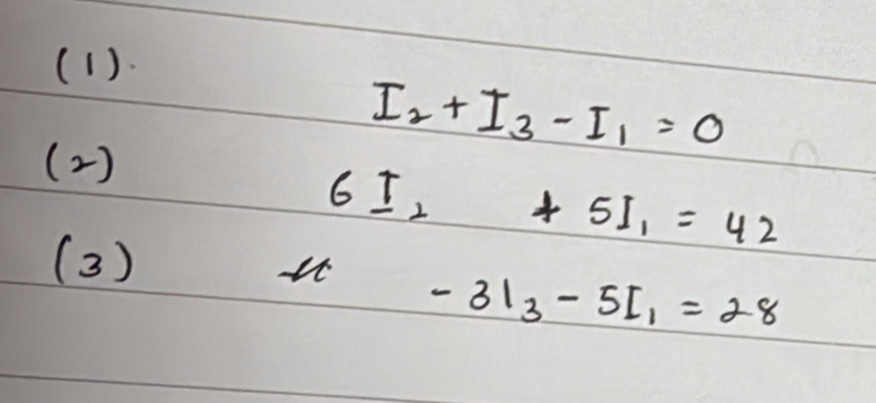 (1).
I₂ + I₃ - I₁ = 0
(2)
6 I₂ + 5I₁ = 42
(3)
- 3I₃ - 5I₁ = 28